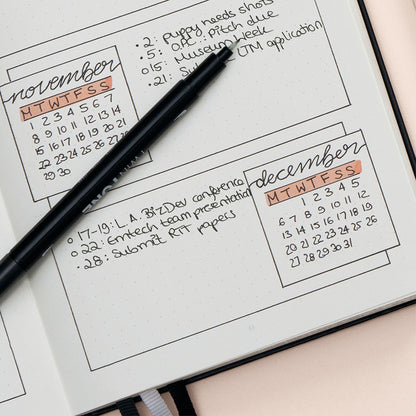 november
M T W T F S S
1 2 3 4 5 6 7
8 9 10 11 12 13 14
15 16 17 18 19 20 21
22 23 24 25 26 27 28
29 30
• 2: Puppy needs shots
• 5: Pitch due
o 15: Museum Week
• 21: LTM application
o 17-19: L.A. BizDev conference
o 22: Emtech team presentation
• 28: Submit RIT papers
december
M T W T F S S
1 2 3 4 5
6 7 8 9 10 11 12
13 14 15 16 17 18 19
20 21 22 23 24 25 26
27 28 29 30 31